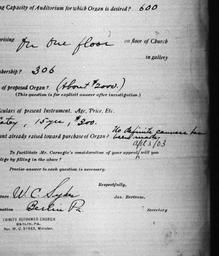 ing Capacity of Auditorium for which Organ is desired? 600
prising On one floor on floor of Church
in gallery
mbership? 306
of proposed Organ? (About $2000.)
(This question is for explicit answer after investigation.)
iculars of present Instrument. Age, Price, Etc.
15 yr. $200.
unt already raised toward purchase of Organ? No definite canvass has
been made.
Apl 2/03
To facilitate Mr. Carnegie's consideration of your appeal will you
blige by filling in the above?
Precise answer to each question is necessary.
Respectfully,
W. C. Snyder Jas. Bertram,
Berlin Pa Secretary
TRINITY REFORMED CHURCH
BERLIN, PA.
Rev. W. C. SYKES, Minister.